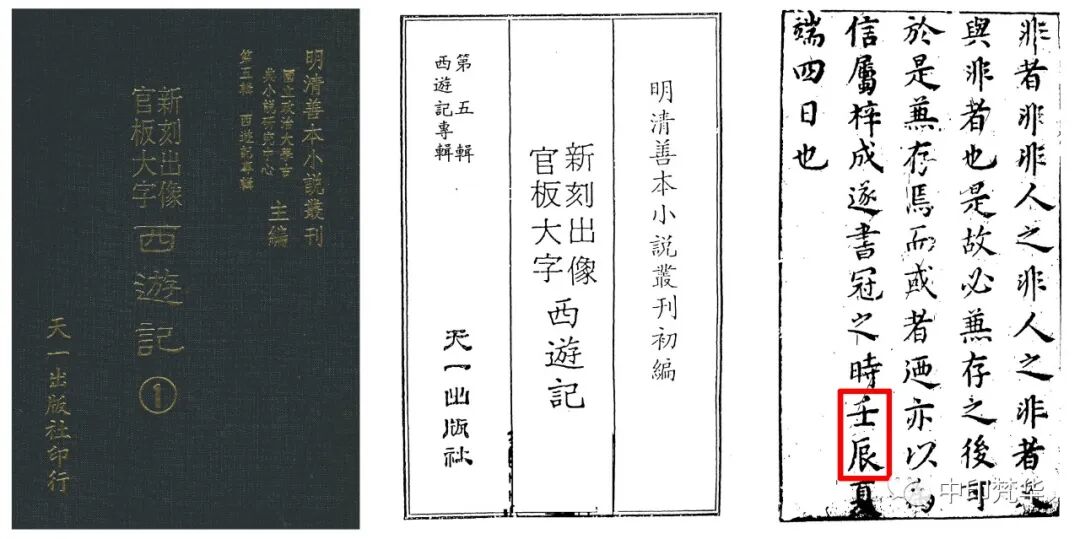 明清善本小說叢刊
國立政治大學古
典小說研究中心
主編
第五輯 西遊記專輯
新刻出像
官板大字
西遊記①
天一出版社印行
明清善本小說叢刊初編
新刻出像
官板大字
西遊記
第五輯
西遊記專輯
天一出版社
非者非非人之非人之非者
與非者也是故必兼存之後可
於是兼存焉而或者迺亦以為
信屬梓成遂書冠之時壬辰夏
端四日也
中印梵华